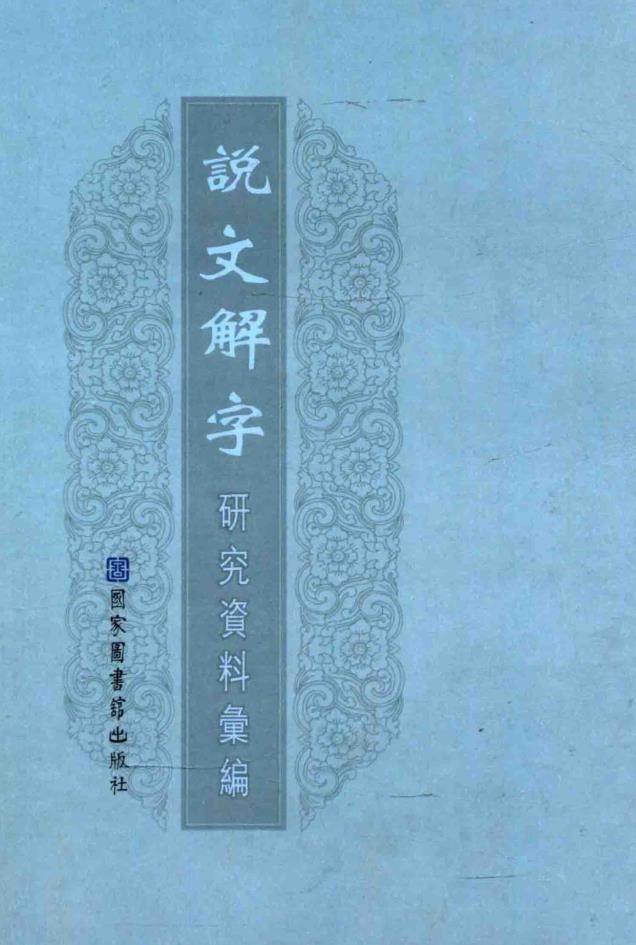 説文解字研究資料彙編
國家圖書館出版社